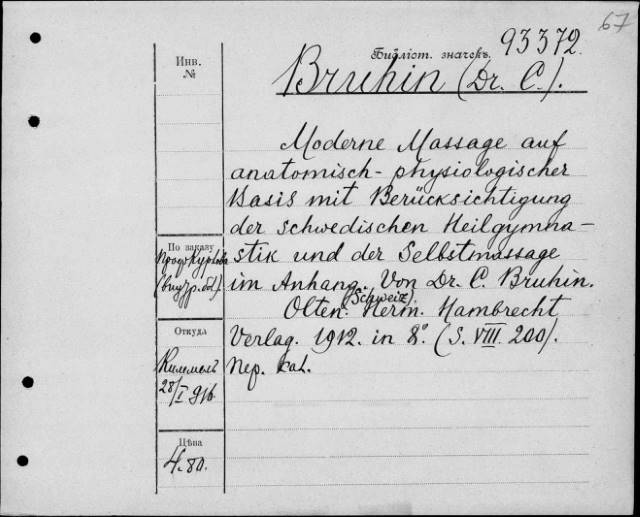 67
Библіот. значекъ. 93372.
Инв.
№
Bruhin (Dr. C.).
Moderne Massage auf
anatomisch-physiologischer
Basis mit Berücksichtigung
der schwedischen Heilgymna-
stik und der Selbstmassage
im Anhang. Von Dr. C. Bruhin.
Olten (Schweiz). Herm. Hambrecht
Verlag. 1912. in 8°. (S. VIII. 200).
пер. кал.
По заказу
Проф. Курлова
Откуда
Киммель
28/I 916
Цѣна
4.80.